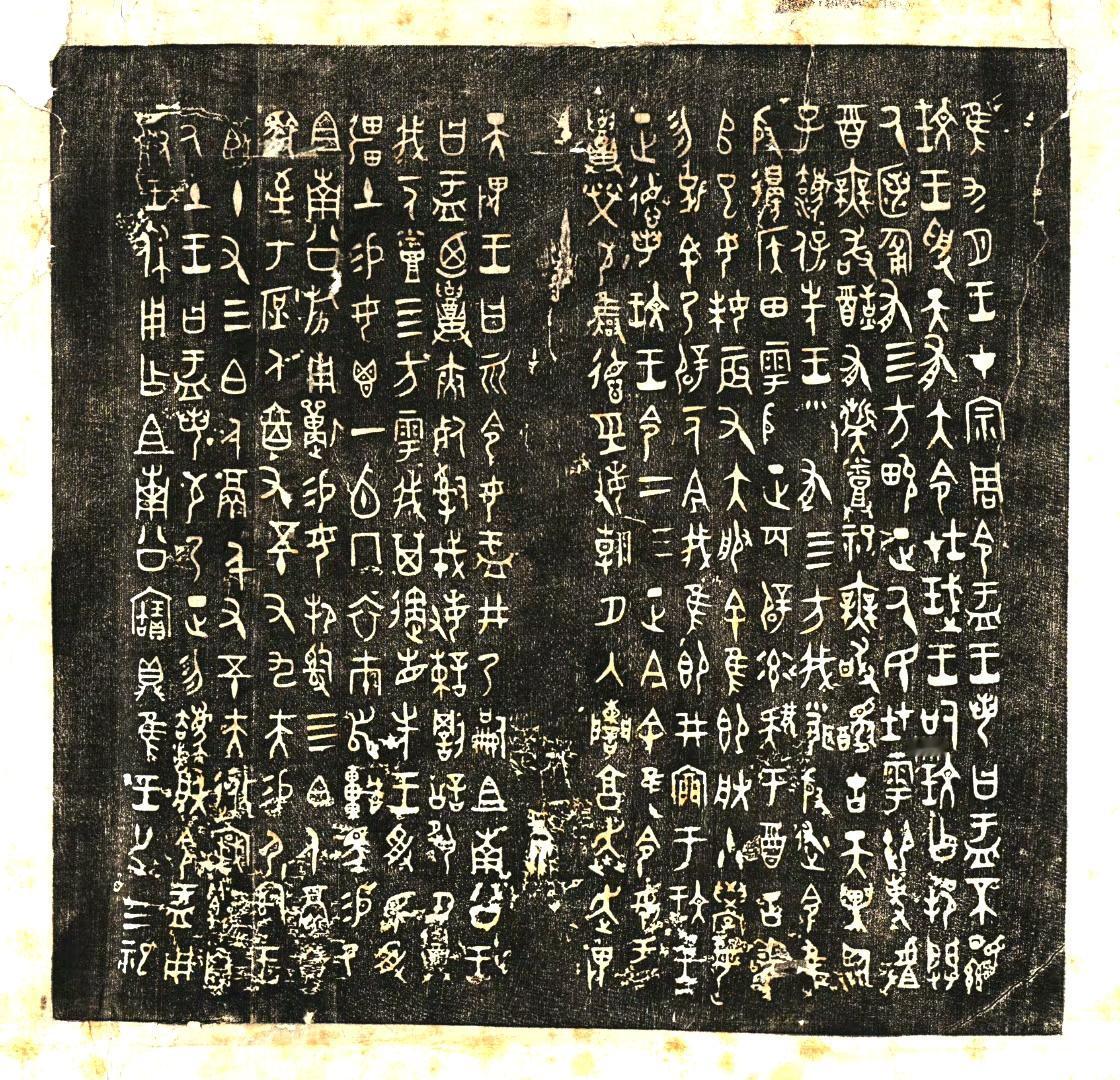 隹九月王才宗周令盂王若曰盂不顯
玟王受天有大令在珷王嗣玟乍邦闢
氒匿匍有四方畯正氒民在𩁹御事𠭯
酉無敢𨠦有髭烝祀無敢醻古天異臨
子灋保先王有四方我聞殷述令隹
殷邊侯田𩁹殷正百辟率肄于酉古喪
𠂤巳女妹辰又大服余隹即朕小學女
勿𠓗余乃辟一人今我隹即井㐭于玟王
正德若玟王令二三正今余隹令女盂
召榮芍雝德巠敏朝夕入讕享奔走畏
天畏王曰𠀠令女盂井乃嗣且南公王
曰盂迺召夾死𤔲戎敏諫罰訟夙夕召
我一人烝四方𩁹我其遹省先王受民受
彊土易女鬯一卣冂衣巿舄車馬易乃
且南公旂用狩易女邦𤔲四白人鬲自
馭至于庶人六百又五十又九夫易尸𤔲
王臣十又三白人鬲千又五十夫𨒅寏遷自
氒土王曰盂若芍乃正勿灋朕令盂用
對王休用乍且南公寶鼎隹王廿又三祀